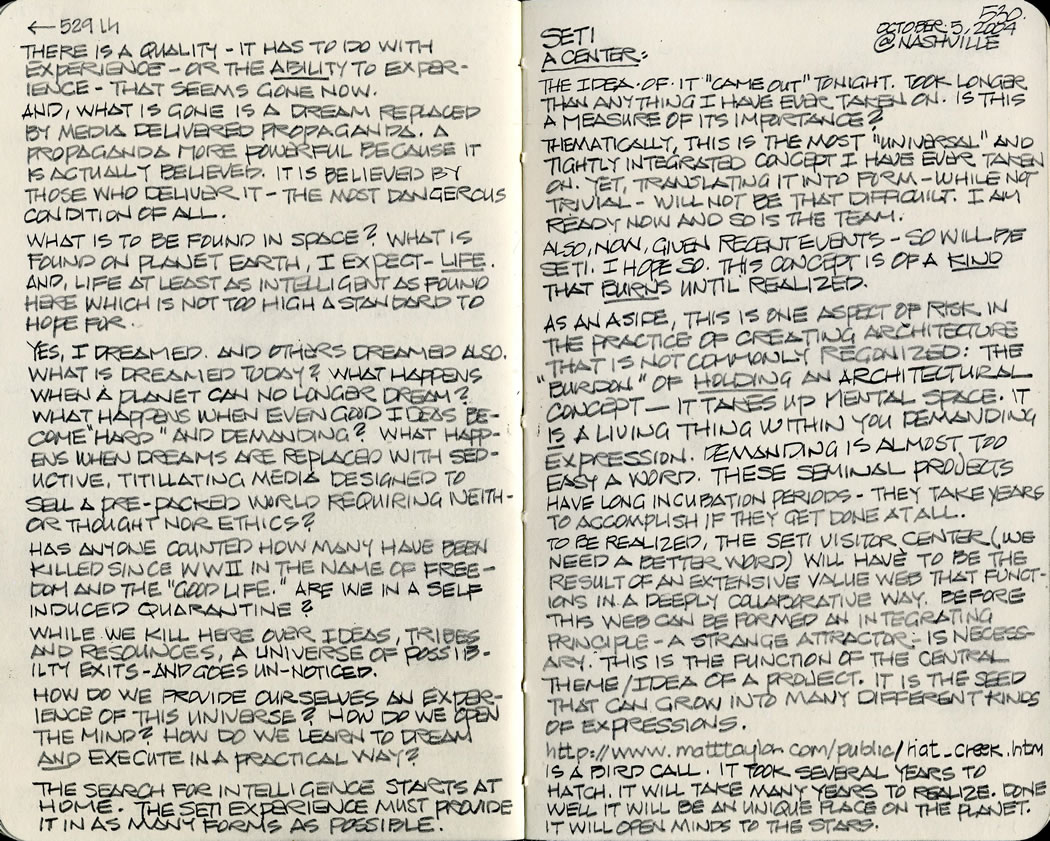 ← 529 LH
THERE IS A QUALITY - IT HAS TO DO WITH
EXPERIENCE - OR THE ABILITY TO EXPER-
IENCE - THAT SEEMS GONE NOW.
AND, WHAT IS GONE IS A DREAM REPLACED
BY MEDIA DELIVERED PROPAGANDA. A
PROPAGANDA MORE POWERFUL BECAUSE IT
IS ACTUALLY BELIEVED. IT IS BELIEVED BY
THOSE WHO DELIVER IT - THE MOST DANGEROUS
CONDITION OF ALL.
WHAT IS TO BE FOUND IN SPACE? WHAT IS
FOUND ON PLANET EARTH, I EXPECT - LIFE.
AND, LIFE AT LEAST AS INTELLIGENT AS FOUND
HERE WHICH IS NOT TOO HIGH A STANDARD TO
HOPE FOR.
YES, I DREAMED. AND OTHERS DREAMED ALSO.
WHAT IS DREAMED TODAY? WHAT HAPPENS
WHEN A PLANET CAN NO LONGER DREAM?
WHAT HAPPENS WHEN EVEN GOOD IDEAS BE-
COME "HARD" AND DEMANDING? WHAT HAPP-
ENS WHEN DREAMS ARE REPLACED WITH SED-
UCTIVE, TITILLATING MEDIA DESIGNED TO
SELL A PRE-PACKED WORLD REQUIRING NEITH-
OR THOUGHT NOR ETHICS?
HAS ANYONE COUNTED HOW MANY HAVE BEEN
KILLED SINCE WWII IN THE NAME OF FREE-
DOM AND THE "GOOD LIFE." ARE WE IN A SELF
INDUCED QUARANTINE?
WHILE WE KILL HERE OVER IDEAS, TRIBES
AND RESOUNCES, A UNIVERSE OF POSSIB-
ILTY EXITS - AND GOES UN-NOTICED.
HOW DO WE PROVIDE OURSELVES AN EXPER-
IENCE OF THIS UNIVERSE? HOW DO WE OPEN
THE MIND? HOW DO WE LEARN TO DREAM
AND EXECUTE IN A PRACTICAL WAY?
THE SEARCH FOR INTELLIGENCE STARTS AT
HOME. THE SETI EXPERIENCE MUST PROVIDE
IT IN AS MANY FORMS AS POSSIBLE.
530
OCTOBER. 5, 2004
@ NASHVILLE
SETI
A CENTER:
THE IDEA OF IT "CAME OUT" TONIGHT. TOOK LONGER
THAN ANYTHING I HAVE EVER TAKEN ON. IS THIS
A MEASURE OF ITS IMPORTANCE?
THEMATICALLY, THIS IS THE MOST "UNIVERSAL" AND
TIGHTLY INTEGRATED CONCEPT I HAVE EVER TAKEN
ON. YET, TRANSLATING IT INTO FORM - WHILE NOT
TRIVIAL - WILL NOT BE THAT DIFFICUILT. I AM
READY NOW AND SO IS THE TEAM.
ALSO, NOW, GIVEN RECENT EVENTS - SO WILL BE
SETI. I HOPE SO. THIS CONCEPT IS OF A KIND
THAT BURNS UNTIL REALIZED.
AS AN ASIDE, THIS IS ONE ASPECT OF RISK IN
THE PRACTICE OF CREATING ARCHITECTURE
THAT IS NOT COMMONLY REGONIZED: THE
"BURDON" OF HOLDING AN ARCHITECTURAL
CONCEPT — IT TAKES UP MENTAL SPACE. IT
IS A LIVING THING WITHIN YOU DEMANDING
EXPRESSION. DEMANDING IS ALMOST TOO
EASY A WORD. THESE SEMINAL PROJECTS
HAVE LONG INCUBATION PERIODS - THEY TAKE YEARS
TO ACCOMPLISH IF THEY GET DONE AT ALL.
TO BE REALIZED, THE SETI VISITOR CENTER (WE
NEED A BETTER WORD) WILL HAVE TO BE THE
RESULT OF AN EXTENSIVE VALUE WEB THAT FUNCT-
IONS IN A DEEPLY COLLABORATIVE WAY. BEFORE
THIS WEB CAN BE FORMED AN INTEGRATING
PRINCIPLE - A STRANGE ATTRACTOR - IS NECESS-
ARY. THIS IS THE FUNCTION OF THE CENTRAL
THEME/IDEA OF A PROJECT. IT IS THE SEED
THAT CAN GROW INTO MANY DIFFERENT KINDS
OF EXPRESSIONS.
http://www.matttaylor.com/public/hat_creek.htm
IS A BIRD CALL. IT TOOK SEVERAL YEARS TO
HATCH. IT WILL TAKE MANY YEARS TO REALIZE. DONE
WELL IT WILL BE AN UNIQUE PLACE ON THE PLANET.
IT WILL OPEN MINDS TO THE STARS.